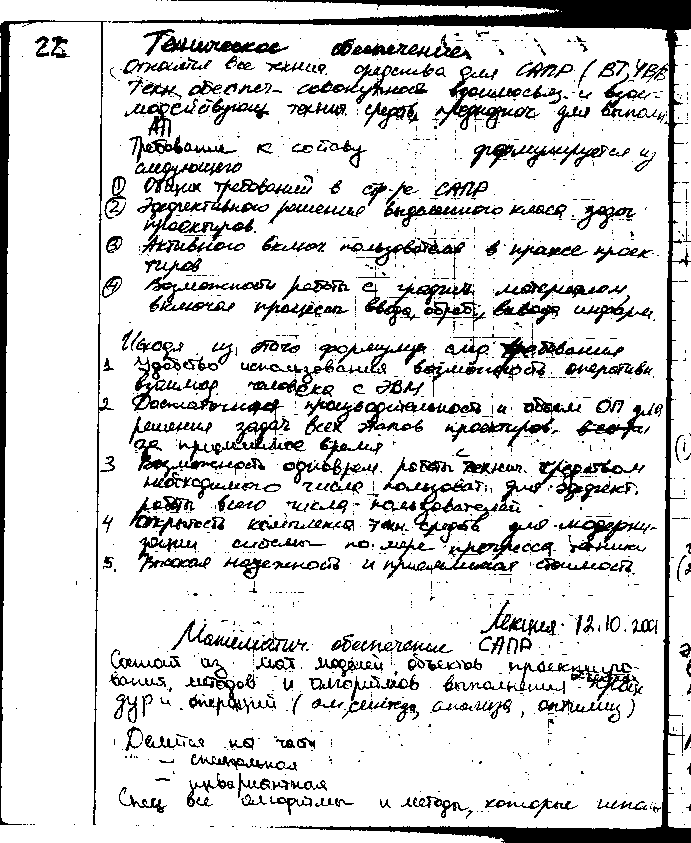 22
Техническое обеспечение
Относится все технич. средства для САПР (ВТ, УВВ
Техн. обеспеч - совокупность взаимосвяз. и взаи-
модействующ технич средств, предназнач для выполн
АП
Требование к составу формулируется из
следующего
① Общих требований в стр-ре САПР
② Эффективного решения выделенного класса задач
проектиров.
③ Активного включ пользователя в процесс проек-
тиров
④ Возможности работы с графич. материалом
включая процессы ввода, обраб, вывода информ.
Исходя из этого формулир след требования
1. Удобство использования возможность оперативн
взаимод человека с ЭВМ
2 Достаточная производительность и объем ОП для
решения задач всех этапов проектиров.
за приемлемое время
3 Возможность одноврем. работы технич. средством
необходимого числа пользоват. для эффект.
работы всего числа пользователей
4 Открытость комплекса техн средств для модерни-
зации системы по мере прогресса техники
5. Высокая надежность и приемлемая стоимость
Лекция 12.10.2001
Математич. обеспечение САПР
Состоит из мат. моделей объектов проектиро-
вания, методов и алгоритмов выполнения
дур и операций ( синтеза, анализа, оптимиз)
Делится на части
- специальная
- инвариантная
Спец все алгоритмы и методы, которые испол